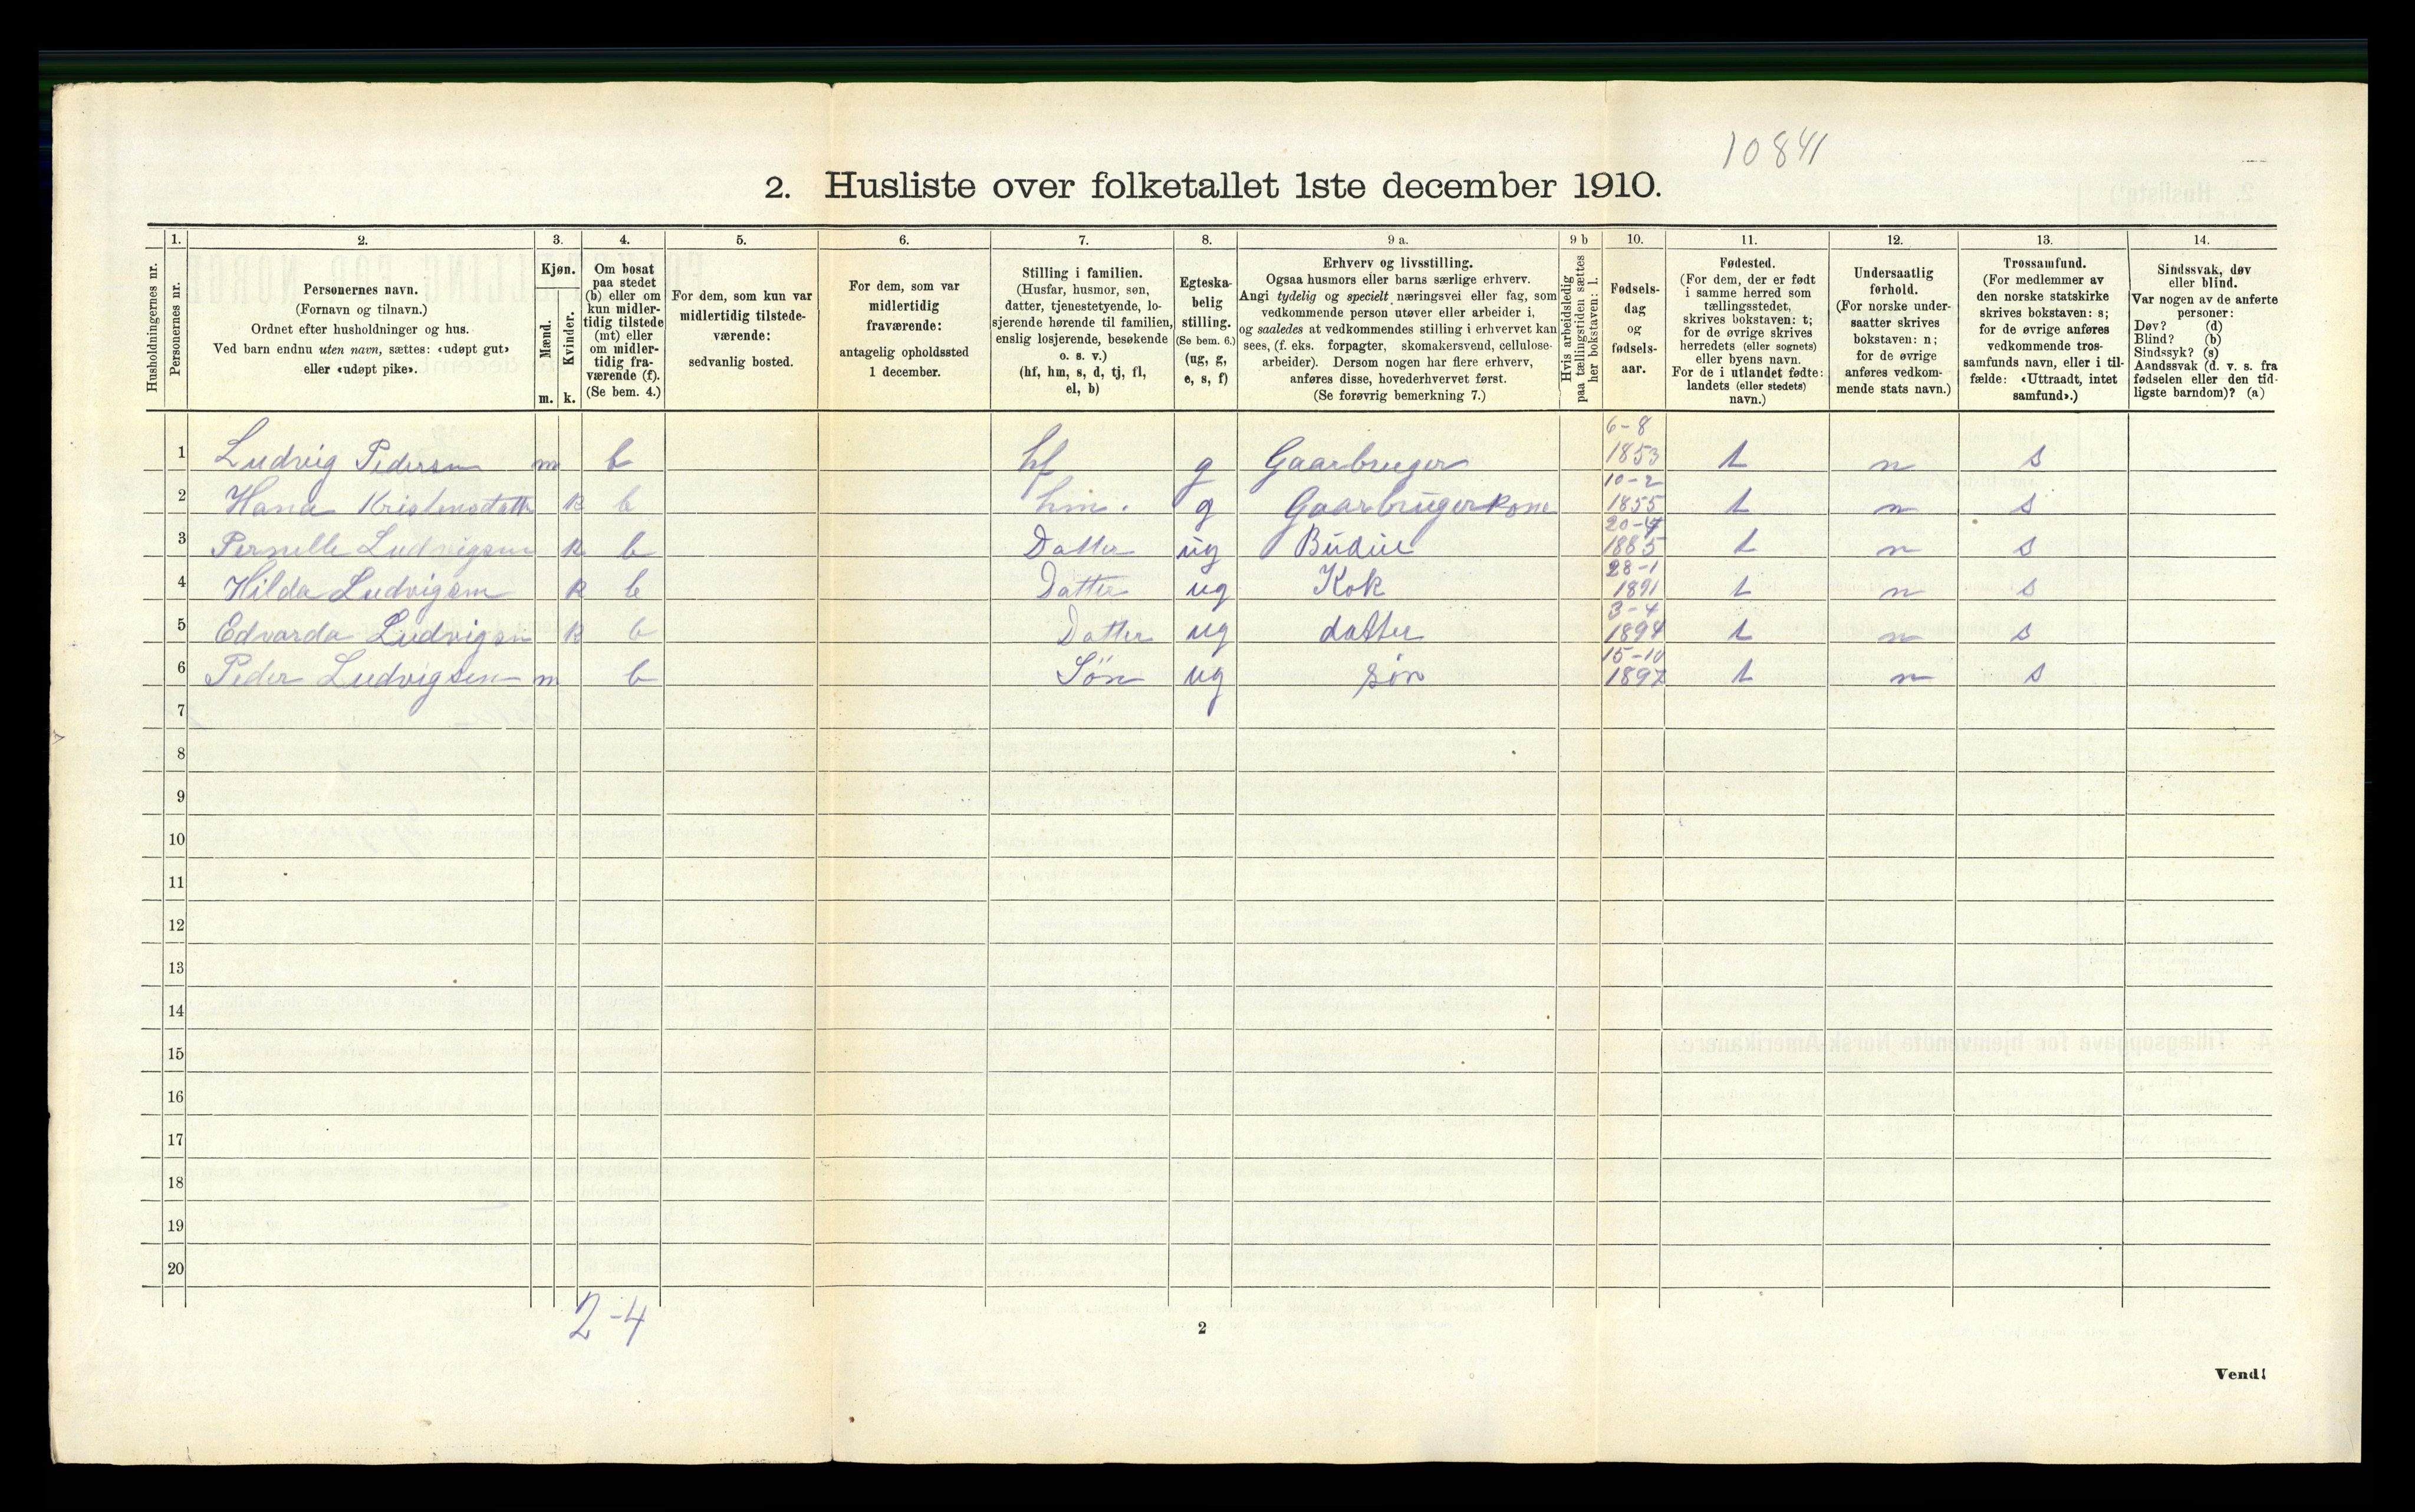 10841
2. Husliste over folketallet 1ste december 1910.
Husholdningernes nr.
1.
Personernes nr.
2.
Personernes navn.
(Fornavn og tilnavn.)
Ordnet efter husholdninger og hus.
Ved barn endnu uten navn, sættes: «udøpt gut»
eller «udøpt pike».
3.
Kjøn.
Mænd.
Kvinder.
m. k.
4.
Om bosat
paa stedet
(b) eller om
kun midler-
tidig tilstede
(mt) eller
om midler-
tidig fra-
værende (f).
(Se bem. 4.)
5.
For dem, som kun var
midlertidig tilstede-
værende:
sedvanlig bosted.
6.
For dem, som var
midlertidig
fraværende:
antagelig opholdssted
1 december.
7.
Stilling i familien.
(Husfar, husmor, søn,
datter, tjenestetyende, lo-
sjerende hørende til familien,
enslig losjerende, besøkende
o. s. v.)
(hf, hm, s, d, tj, fl,
el, b)
8.
Egteska-
belig
stilling.
(Se bem. 6.)
(ug, g,
e, s, f)
9 a.
Erhverv og livsstilling.
Ogsaa husmors eller barns særlige erhverv.
Angi tydelig og specielt næringsvei eller fag, som
vedkommende person utøver eller arbeider i,
og saaledes at vedkommendes stilling i erhvervet kan
sees, (f. eks. forpagter, skomakersvend, cellulose-
arbeider). Dersom nogen har flere erhverv,
anføres disse, hovederhvervet først.
(Se forøvrig bemerkning 7.)
9 b
Hvis arbeidsledig
paa tællingstiden sættes
her bokstaven: l.
10.
Fødsels-
dag
og
fødsels-
aar.
11.
Fødested.
(For dem, der er født
i samme herred som
tællingsstedet,
skrives bokstaven: t;
for de øvrige skrives
herredets (eller sognets)
eller byens navn.
For de i utlandet fødte:
landets (eller stedets)
navn.)
12.
Undersaatlig
forhold.
(For norske under-
saatter skrives
bokstaven: n;
for de øvrige
anføres vedkom-
mende stats navn.)
13.
Trossamfund.
(For medlemmer av
den norske statskirke
skrives bokstaven: s;
for de øvrige anføres
vedkommende tros-
samfunds navn, eller i til-
fælde: «Uttraadt, intet
samfund».)
14.
Sindssvak, døv
eller blind.
Var nogen av de anførte
personer:
Døv? (d)
Blind? (b)
Sindssyk? (s)
Aandssvak (d. v. s. fra
fødselen eller den tid-
ligste barndom)? (a)
1 Ludvig Pedersen m b hf g Gaarbruger 6-8 1853 t n s
2 Hana Kristensdatter k b hm. g Gaarbrugerkone 10-2 1855 t n s
3 Pernelle Ludvigsen k b Datter ug Budeie 20-4 1885 t n s
4 Hilda Ludvigsen k b Datter ug Kok 28-1 1891 t n s
5 Edvarda Ludvigsen k b Datter ug datter 3-4 1894 t n s
6 Peder Ludvigsen m b Sön ug sön 15-10 1897 t n s
7
8
9
10
11
12
13
14
15
16
17
18
19
20
2-4
2
Vend!